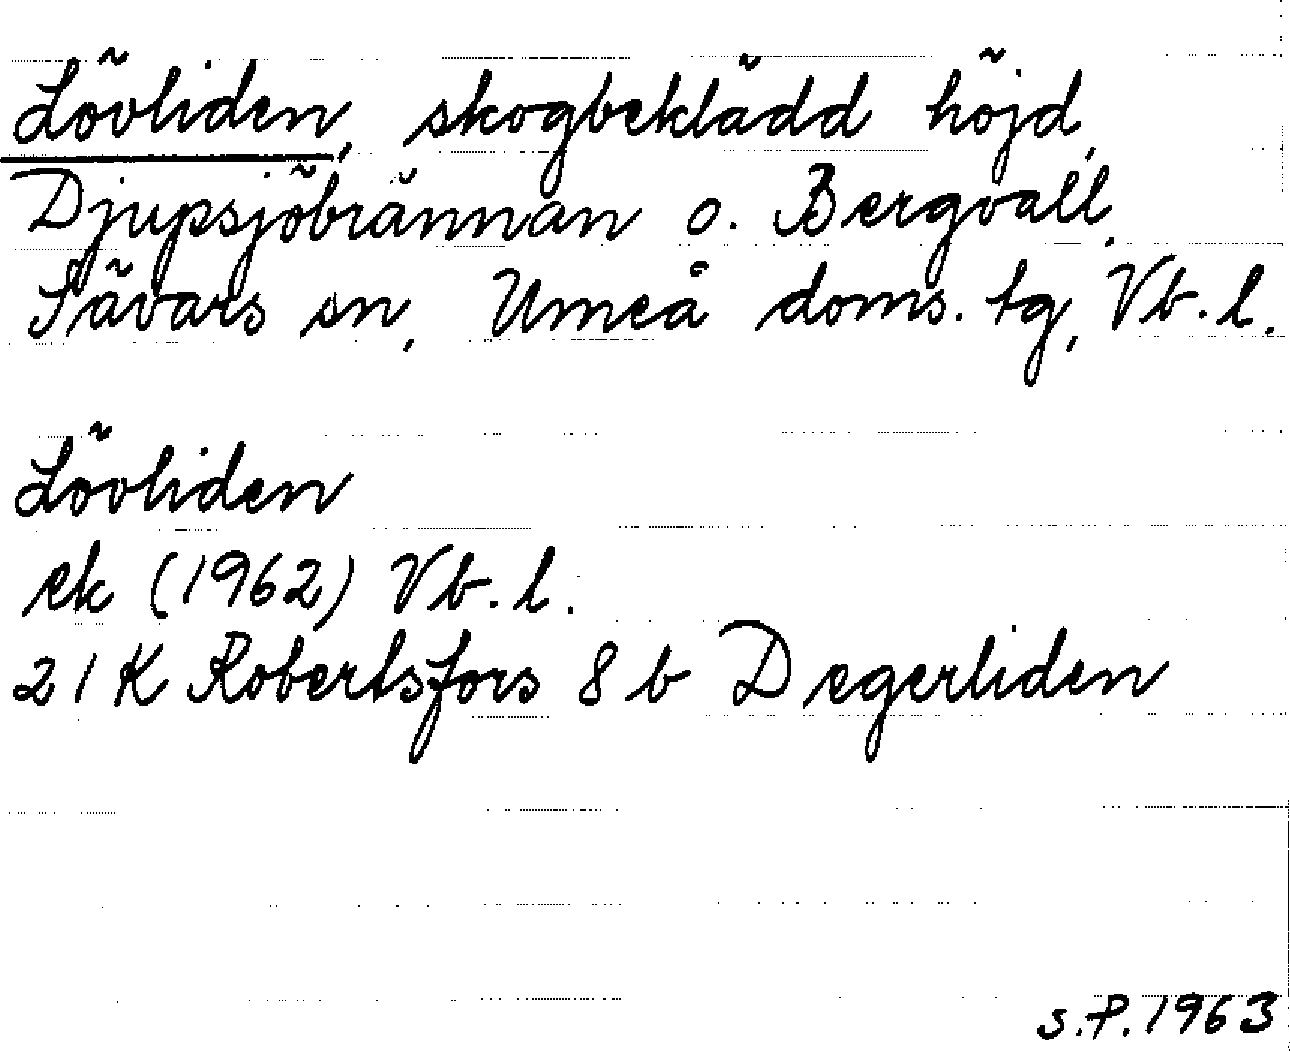 Lövliden, skogbeklädd höjd,
Djupsjöbrännan o. Bergvall,
Sävars sn, Umeå doms. tg, Vb. l.
Lövliden
ek (1962) Vb. l.
21K Robertsfors 8 b Degerliden
S.P. 1963